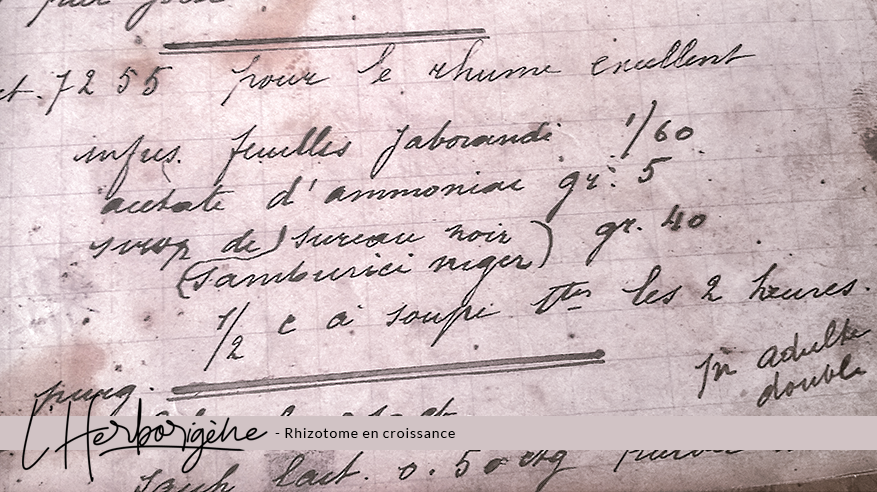 7255 pour le rhume excellent
infus. feuilles Jaborandi 1/60
acetate d'ammoniac gr: 5
sirop de sureau noir gr. 40
(Samburici niger)
1/2 c à soupe ttes les 2 heures.
pr adulte
double
purg.
L'Herborigène - Rhizotome en croissance
lact. 0.50